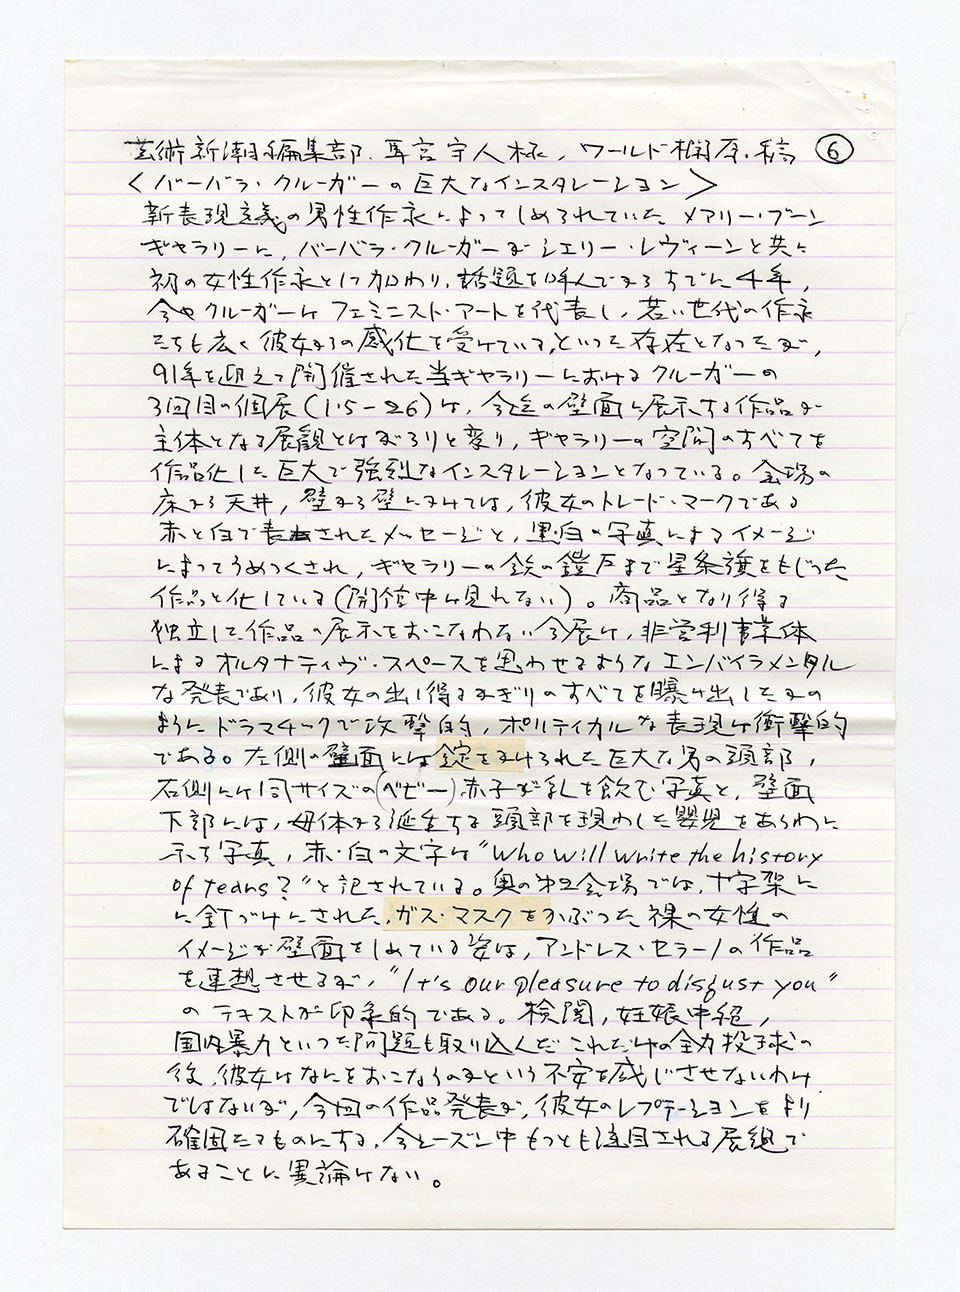 芸術新潮編集部、馬宮宇人様、ワールド梶原・稿 ⑥
＜バーバラ・クルーガーの巨大なインスタレーション＞
新表現主義の男性作家によってしめられていたメアリー・ブーン
ギャラリーに、バーバラ・クルーガーがシェリー・レヴィーンと共に
初の女性作家として加わり、話題を呼んでからすでに4年、
今やクルーガーはフェミニスト・アートを代表し、若い世代の作家
たちも広く彼女からの感化を受けている、といった存在となったが、
91年を迎えて開催された当ギャラリーにおけるクルーガーの
3回目の個展（1.5-26）は、今迄の壁面に展示する作品が
主体となる展観とはがらりと変り、ギャラリーの空間のすべてを
作品化した巨大で強烈なインスタレーションとなっている。会場の
床から天井、壁から壁にかけては、彼女のトレード・マークである
赤と白で表されたメッセージと、黒白の写真によるイメージ
によってうめつくされ、ギャラリーの鉄の鎧戸まで星条旗をもじった
作品と化している（開館中は見れない）。商品となり得る
独立した作品の展示をおこなわない今展は、非営利事業体
によるオルタナティヴ・スペースを思わせるようなエンバイラメンタル
な発表であり、彼女の出し得るかぎりのすべてを曝け出したかの
ようにドラマチックで攻撃的、ポリティカルな表現は衝撃的
である。左側の壁面には錠をかけられた巨大な男の頭部、
右側には同サイズの（ベビー）赤子が乳を飲む写真と、壁面
下部には、母体から誕生する頭部を現わした嬰児をあらわに
示す写真、赤・白の文字は"Who will write the history
of tears?"と記されている。奥の第2会場では、十字架に
に釘づけにされた、ガス・マスクをかぶった裸の女性の
イメージが壁面をしめている姿は、アンドレス・セラーノの作品
を連想させるが、"It's our pleasure to disgust you"
のテキストが印象的である。検閲、妊娠中絶、
国内暴力といった問題も取り込んだこれだけの全力投球の
後、彼女はなにをおこなうのかという不安を感じさせないわけ
ではないが、今回の作品発表が、彼女のレプテーションをより
確固たるものにする、今シーズン中もっとも注目される展観で
あることに異論はない。